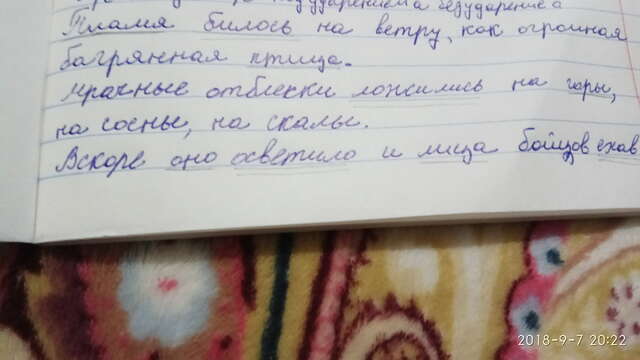 ударением а безударение а
Пламя билось на ветру, как огромная
багрянная птица.
Мрачные отблески ложились на горы,
на сосны, на скалы.
Вскоре оно осветило и лица бойцов ехав
2018-9-7 20:22